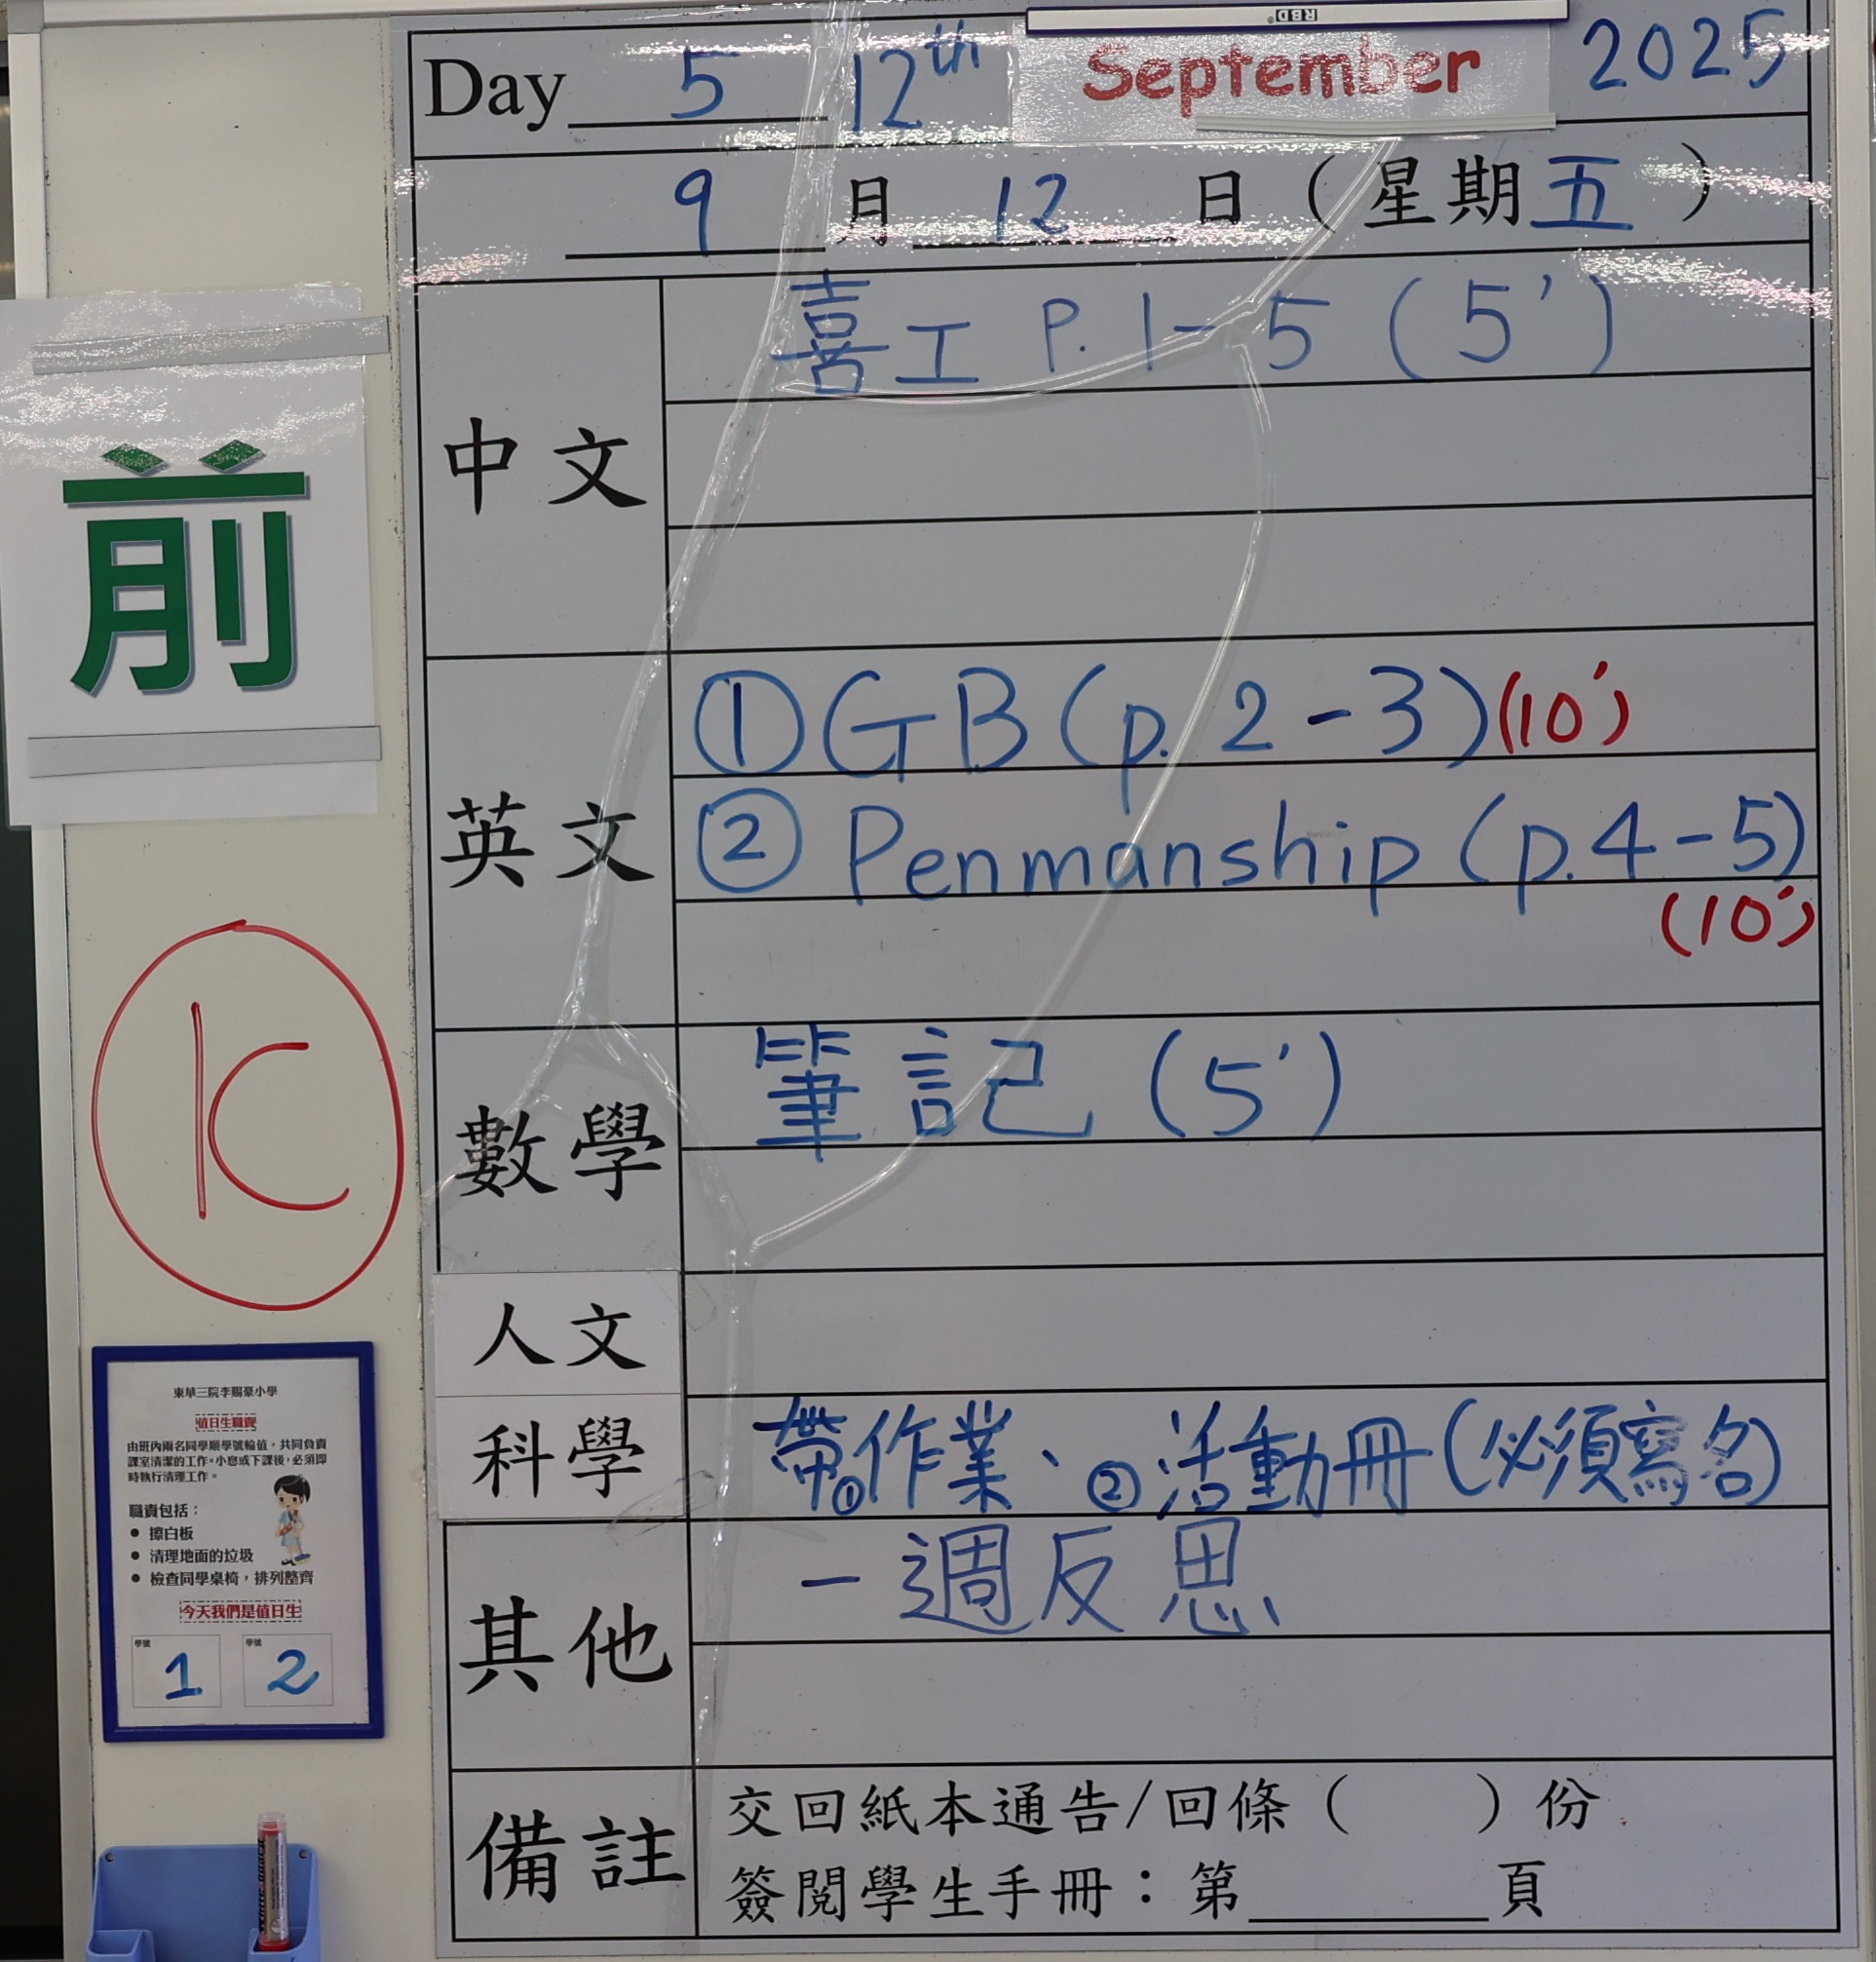 RBD®
Day 5 12th September 2025
9 月 12 日（星期五）
前
中文
喜工 P. 1-5 (5')
英文
① GB (p. 2-3) (10')
② Penmanship (p.4-5)
(10')
數學
筆記 (5')
人文
科學
帶①作業、②活動冊(必須寫名)
其他
一週反思
備註
交回紙本通告/回條（　　）份
簽閱學生手冊：第______頁
東華三院李賜豪小學
值日生職責
由班內兩名同學順學號輪值，共同負責
課室清潔的工作。小息或下課後，必須即
時執行清理工作。
職責包括：
● 擦白板
● 清理地面的垃圾
● 檢查同學桌椅，排列整齊
今天我們是值日生
學號 學號
1 2